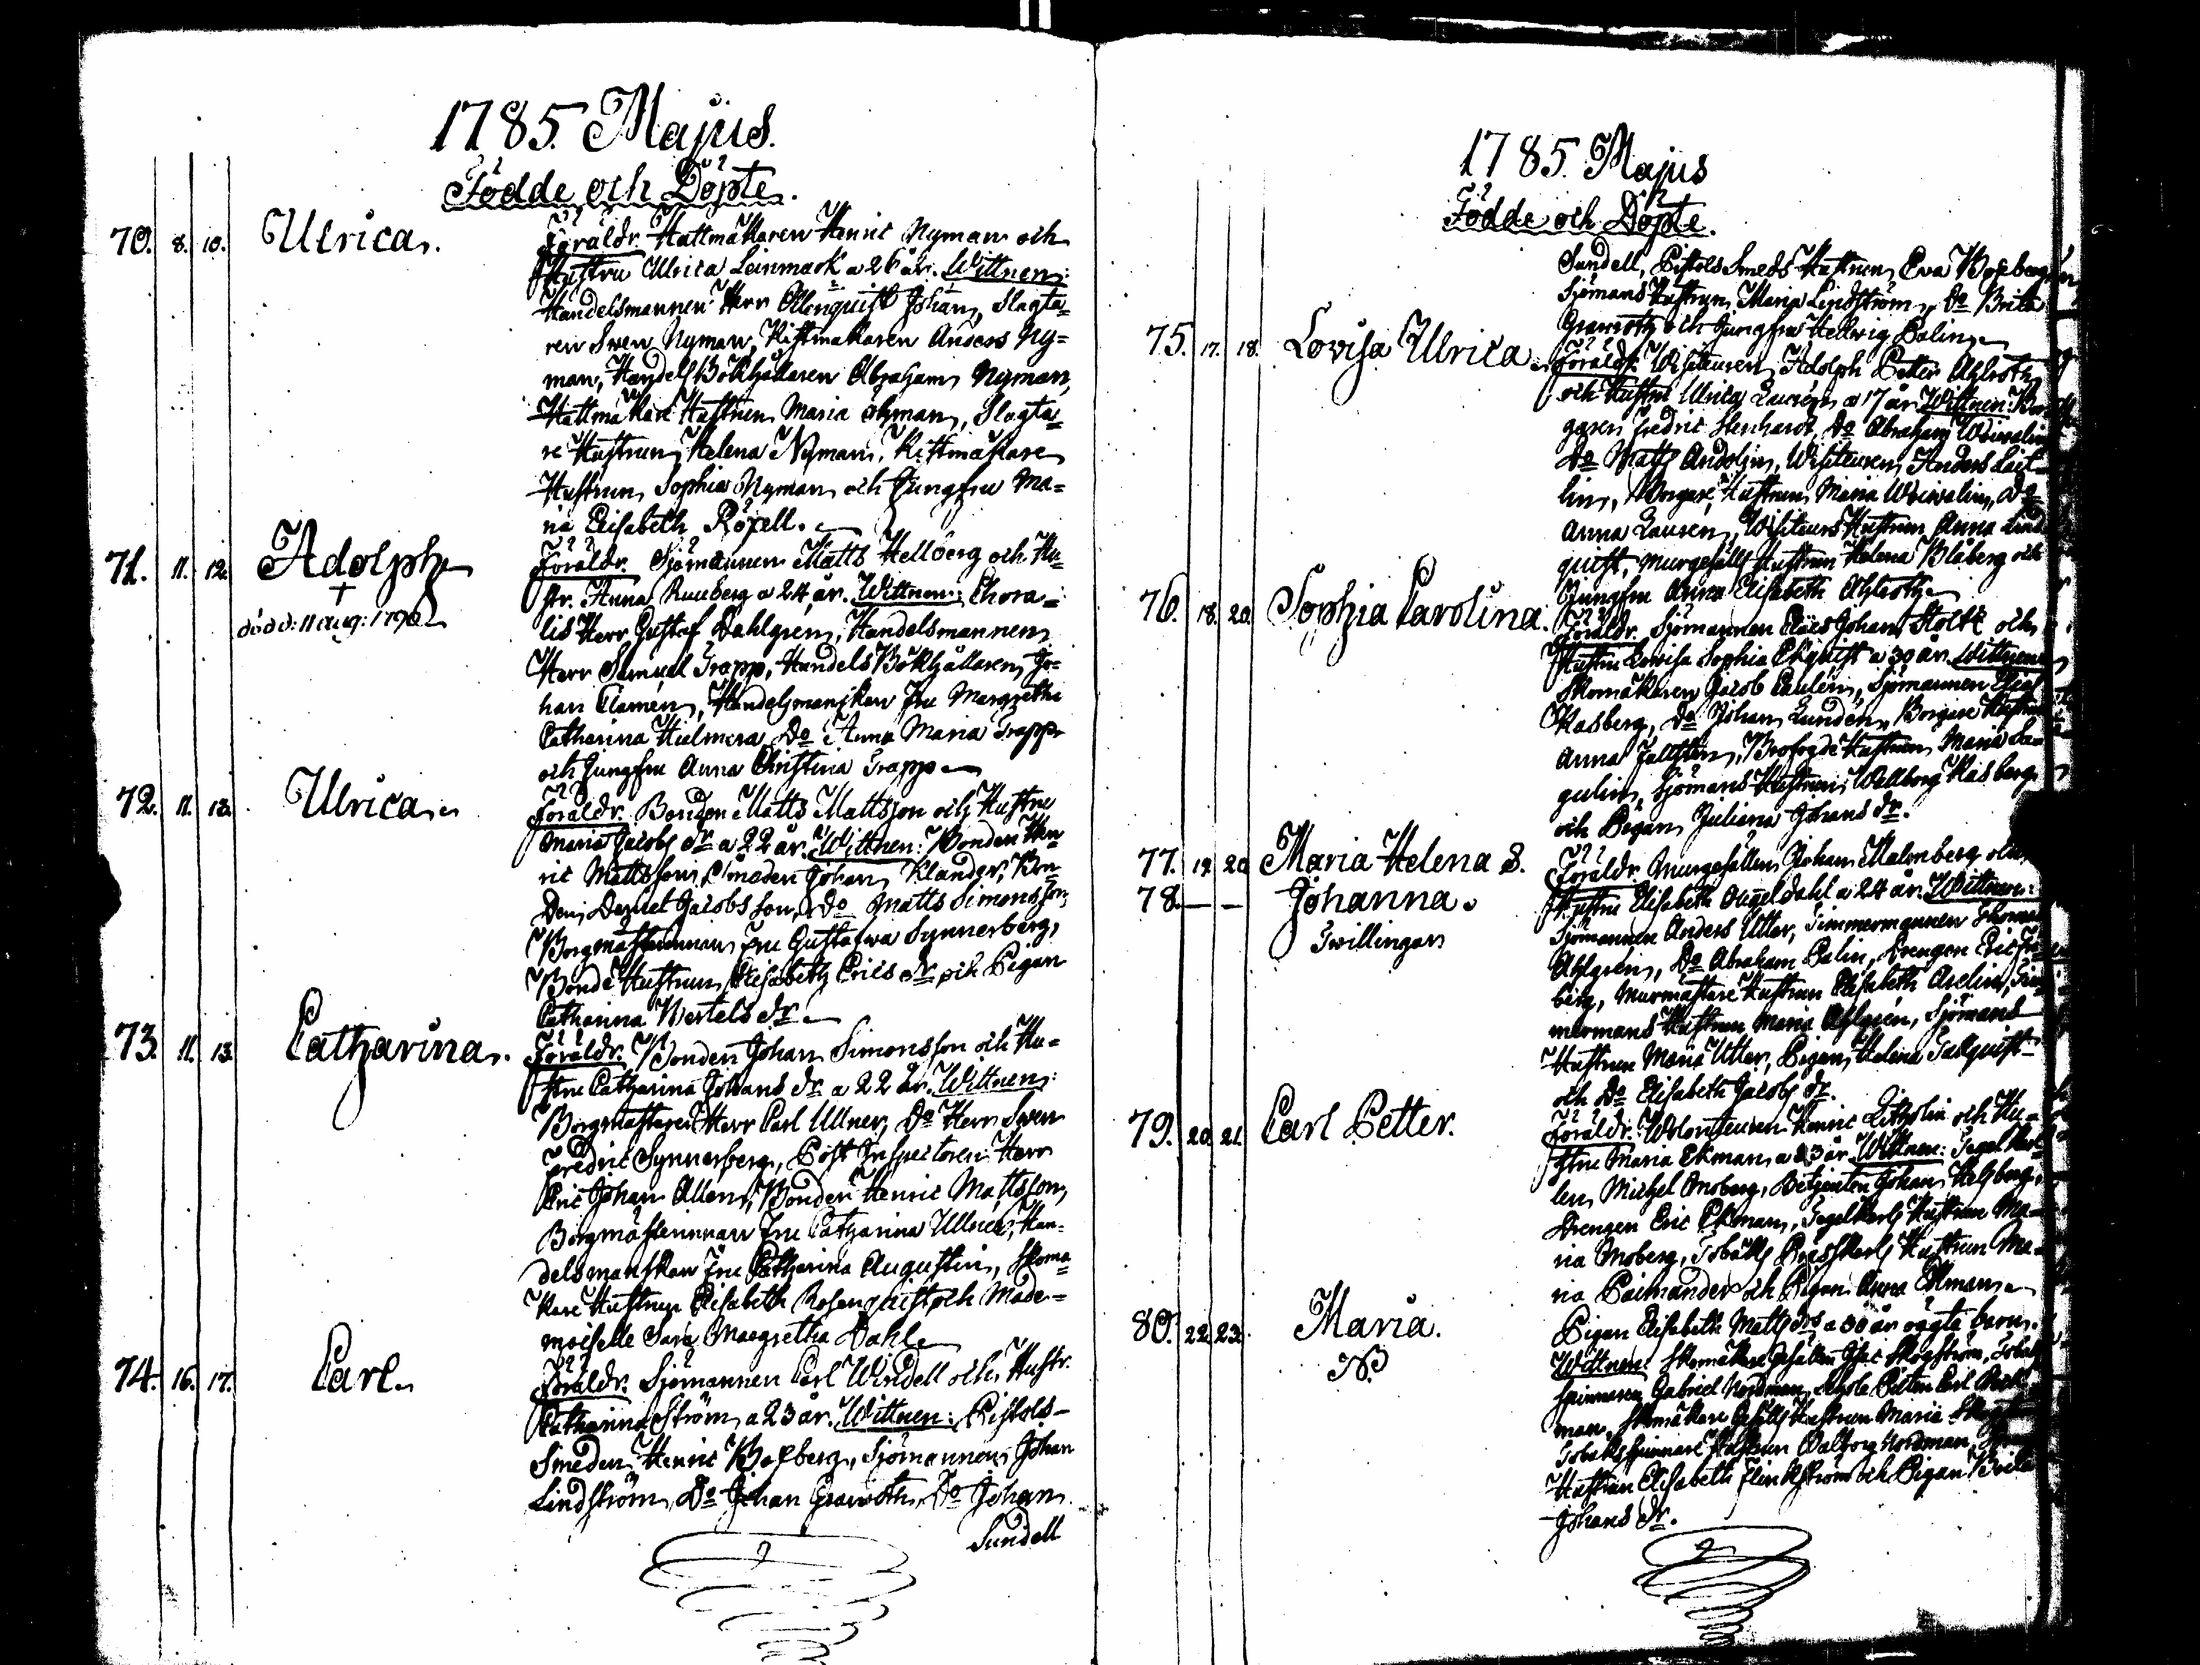 1785. Majus.
Födde och Döpte.
70. 8. 10. Ulrica.
Föräldr. Hattmakaren Henric Nyman och
Hustru Ulrica Leinmark a 26 år. Wittnen:
Handelsmannen Herr Johan, Slagta=
ren Swen Nyman, Anders Ny=
man, Handels Bokhållaren Abraham Nyman,
Hattmakare Hustrun Maria Öhman, Slagta=
re Hustrun Helena Nyman,
Hustrun Sophia Nyman och Jungfru Ma=
ria Elisabeth
71. 11. 12. Adolph
död d: 11 aug: 1790
Föräldr. Sjömannen Matts Hellberg och Hu=
str. Anna Ruuberg a 24 år. Wittnen: Chora=
lis Herr Gustaf Dahlgren, Handelsmannen
Herr Samuel Trapp, Handels Bokhållaren Jo=
han Clamen, Handelsmanskan Fru Margretha
Catharina Do Anna Maria Trapp
och Jungfru Anna Christina Trapp
72. 11. 13. Ulrica.
Föräldr. Bonden Matts Mattsson och Hustru
Maria Jacobs dr a 22 år. Wittnen: Bonden Hen
ric Mattsson, Smeden Johan Klander, Bon=
den Daniel Jacobsson, Do Matts Simonsson,
Borgmästarinnan Fru Gustafwa Synnerberg,
Bonde Hustrun Elisabeth Erics dr och Pigan
Catharina Bertels dr.
73. 11. 13. Catharina.
Föräldr. Bonden Johan Simonsson och Hu=
stru Catharina Johans dr a 22 år. Wittnen:
Borgmästaren Herr Carl Ullner, Do Herr Swen
Fredric Synnerberg, Post Inspectoren Herr
Eric Johan Allen, Bonden Henric Mattsson,
Borgmästarinnan Fru Catharina Ullner, Han=
delsmanskan Fru Catharina Augustin, Skoma=
kare Hustrun Elisabeth Rosenquist och Made=
moiselle Sara Margretha Dahl
74. 16. 17. Carl.
Föräldr. Sjömannen Carl Windell och Hustr.
Catharina Ström a 23 år. Wittnen: Pistols=
Smeden Henric Sjömannen Johan
Lindström, Do Johan Granroth, Do Johan
Sundell
1785. Majus
Födde och Döpte.
Sundell, Pistols Smeds Hustrun Eva
Sjömans Hustrun Maria Lindström, Do Brita
Granroth och Jungfru Hedwig Palin
75. 17. 18. Lovisa Ulrica.
Föräldr. Wisiteuren Adolph Petter Ahlroth
och Hustru Ulrica Lauren a 17 år. Wittnen: Bor
garen Fredric Do Abraham
Do Matts Andolin, Wisiteuren Anders
lin, Borgare Hustrun Maria Do
Anna Lauren, Wisiteurs Hustrun Anna Lind
quist, Murgesälls Hustrun Helena Blåberg och
Jungfru Anna Elisabeth Ahlroth
76. 18. 20. Sophia Carolina.
Föräldr. Sjömannen Claes Johan Stolt och
Hustru Lovisa Sophia Ekquist a 30 år. Wittnen
Skomakaren Jacob Paulin, Sjömannen
Kasberg, Do Johan Lunden, Borgare Hustrun
Anna Brofogde Hustrun Maria
gulin, Sjömans Hustrun Wallborg Kasberg
och Pigan Juliana Johans dr.
77. 19. 20. Maria Helena &.
78. — — Johanna.
Twillingar
Föräldr. Murgesällen Johan Malmberg och
Hustru Elisabeth Ångeldahl a 24 år. Wittnen:
Sjömannen Anders Utter, Timmermannen Thomas
Ahlgren, Do Abraham Palin, Drengen Eric
berg, Murmästare Hustrun Elisabeth Aselin, Tim
mermans Hustrun Maria Ahlgren, Sjömans
Hustrun Maria Utter, Pigan Helena Tallquist
och Do Elisabeth Jacobs dr.
79. 20. 21. Carl Petter.
Föräldr. Wolonteuren Henric och Hu=
stru Maria Ekman a 23 år. Wittnen:
len Michel Moberg, Betjenten Johan Helsberg,
Drengen Eric Ekman, Hustrun Ma=
ria Moberg, Tobaks Hustrun Ma=
ria Paimander och Pigan Anna Ekman
80. 22. 23. Maria.
N.
Pigan Elisabeth Matts dr a 30 år oägta barn.
Wittnen: Skomakare Gesällen Isac Skogström, Tobaks
spinnaren Gabriel Nordman, Carl
man, Skomakare Gesälls Hustrun Maria
Tobaksspinnare Hustrun Walborg Nordman,
Hustrun Elisabeth Flinkström och Pigan Brita
Johans dr.